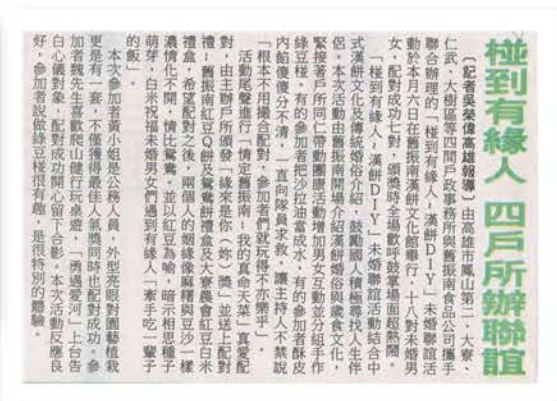 椪到有緣人 四戶所辦聯誼
〔記者吳榮偉高雄報導〕由高雄市鳳山第二、大寮、
仁武、大樹區等四間戶政事務所與舊振南食品公司攜手
聯合辦理的「椪到有緣人~漢餅DIY」未婚聯誼活
動於本月六日在舊振南漢餅文化館舉行，十八對未婚男
女，配對成功七對，頒獎時全場歡呼鼓掌場面超熱鬧。
「椪到有緣人~漢餅DIY」未婚聯誼活動結合中
式漢餅文化及傳統婚俗介紹，鼓勵國人積極尋找人生伴
侶。本次活動由舊振南開場介紹漢餅婚俗與歲食文化，
緊接著戶所同仁帶動團康活動增加男女互動並分組手作
綠豆椪，有的參加者把沙拉油當成水，有的參加者酥皮
內餡傻傻分不清，一直向隊員求救，讓主持人不禁說
「根本不用撮合配對，參加者們就玩得不亦樂乎」。
活動尾聲進行「情定舊振南-我的真命天菜」真愛配
對，由主辦戶所頒發「緣來是你(妳)獎」並送上配對
禮-舊振南紅豆Q餅及鴛鴦餅禮盒及大寮農會紅豆白米
禮盒，希望配對之後，兩個人的姻緣像麻糬與豆沙一樣
濃情化不開，情比鴛鴦。並以紅豆為喻，暗示相思種子
萌芽，白米祝福未婚男女們遇到有緣人「牽手吃一輩子
的飯」。
本次參加者黃小姐是公務人員，外型亮眼對園藝植栽
更是有一套，不僅獲得最佳人氣獎同時也配對成功。參
加者魏先生喜歡爬山健行玩桌遊，「勇遇愛河」上台告
白心儀對象，配對成功開心留下合影。本次活動反應良
好，參加者說做綠豆椪很有趣，是很特別的體驗。